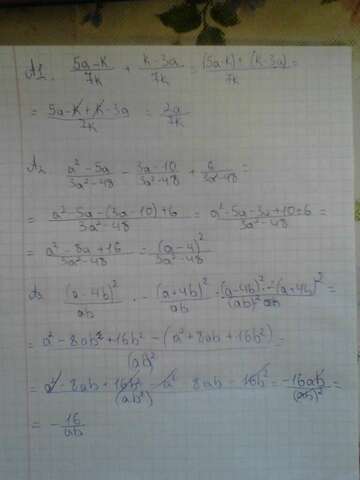 А1. (5a-k)/7k + (k-3a)/7k = ((5a-k)+(k-3a))/7k =
= (5a-k+k-3a)/7k = 2a/7k
А2 (a²-5a)/(3a²-48) - (3a-10)/(3a²-48) + 6/(3a²-48) =
= (a²-5a-(3a-10)+6)/(3a²-48) = (a²-5a-3a+10+6)/(3a²-48) =
= (a²-8a+16)/(3a²-48) = (a-4)²/(3a²-48)
А3 (a-4b)²/ab - (a+4b)²/ab = ((a-4b)²-(a+4b)²)/(ab)² =
= (a²-8ab+16b²-(a²+8ab+16b²))/(ab)² =
= (a²-8ab+16b²-a²-8ab-16b²)/(ab²) = -16ab/(ab)² =
= -16/ab